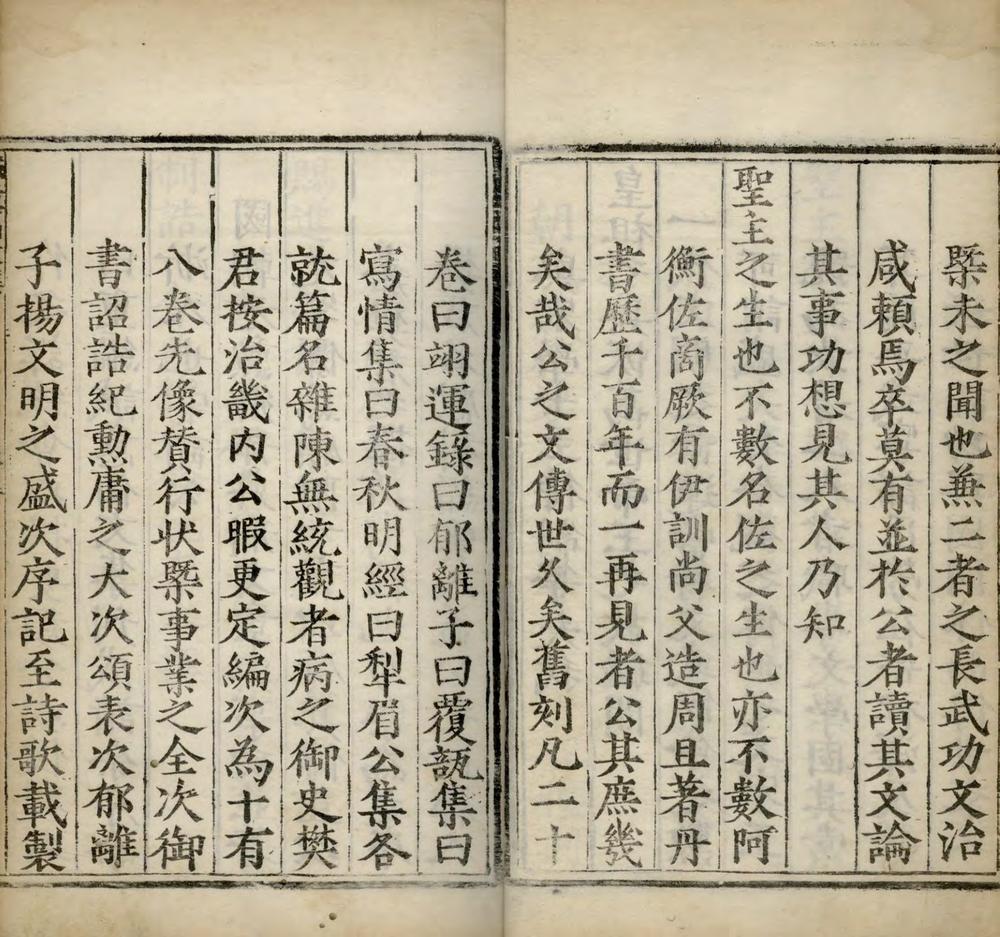 槩未之聞也兼二者之長武功文治
咸頼焉卒莫有並於公者讀其文論
其事功想見其人乃知
聖主之生也不數名佐之生也亦不數阿
衡佐商厥有伊訓尚父造周且著丹
書歷千百年而一再見者公其庶幾
矣哉公之文傳世久矣舊刻凡二十
卷曰翊運錄曰郁離子曰覆瓿集曰
寫情集曰春秋明經曰犁眉公集各
就篇名雜陳無統觀者病之御史樊
君按治畿內公暇更定編次為十有
八卷先像賛行状槩事業之全次御
書詔誥紀勲庸之大次頌表次郁離
子揚文明之盛次序記至詩歌載製